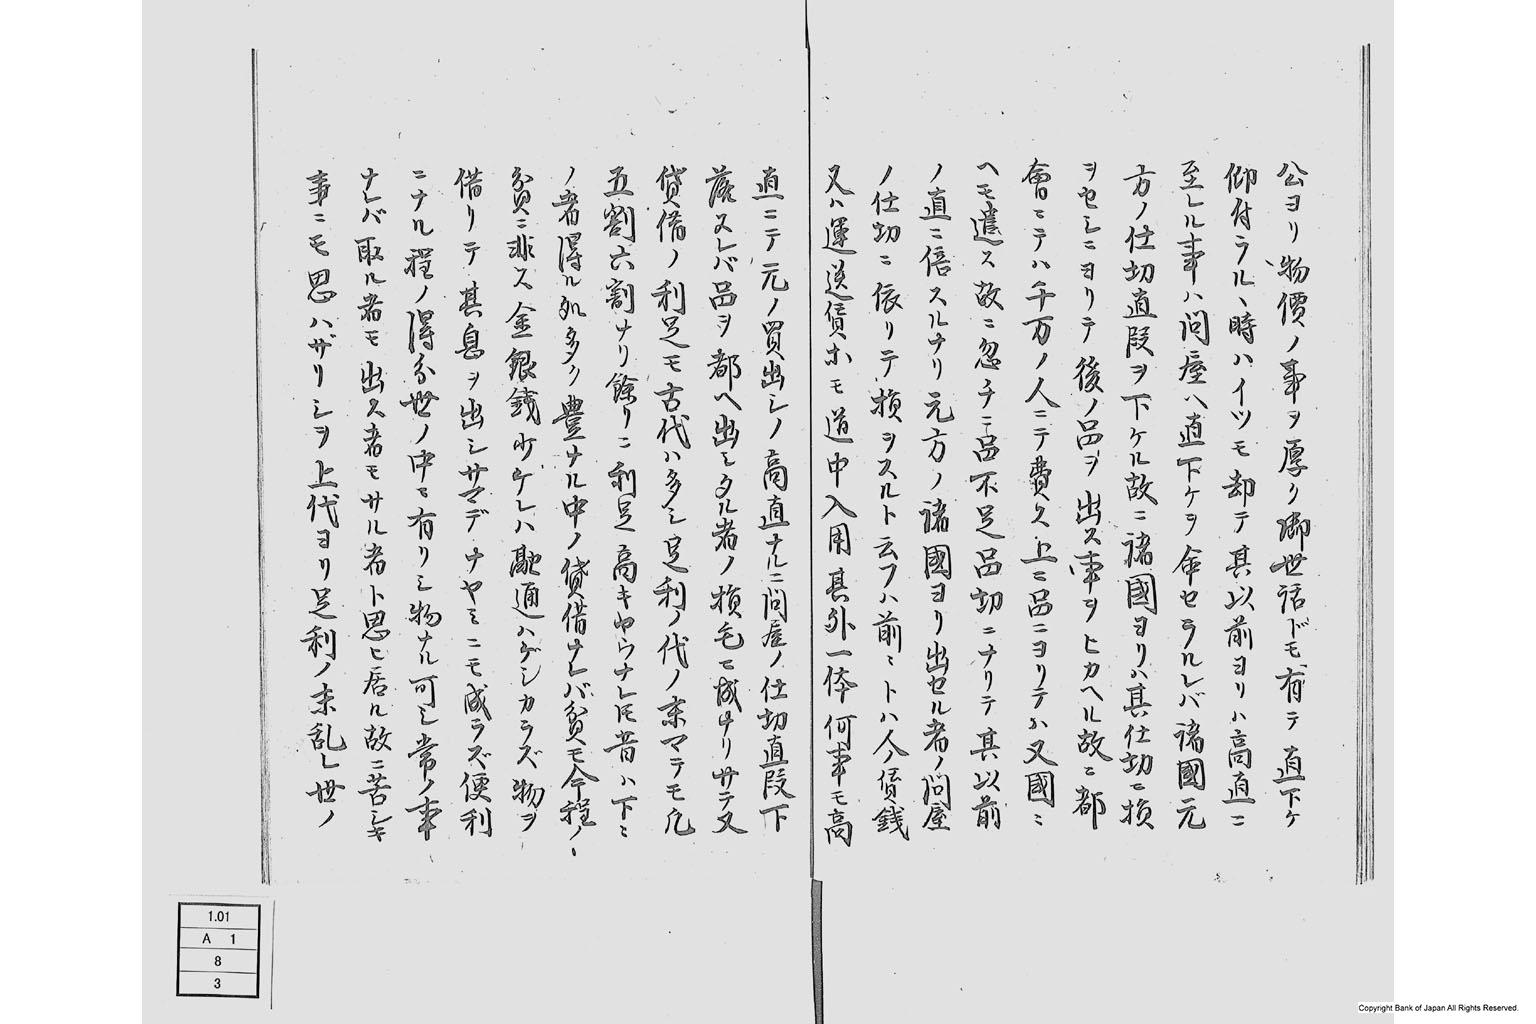 公ヨリ物價ノ事ヲ厚ク御世話ドモ有テ直下ケ
仰付ラルヽ時ハイツモ却テ其以前ヨリハ高直ニ
至レル事ハ問屋ヘ直下ケヲ命セラルレバ諸國元
方ノ仕切直段ヲ下ケル故ニ諸國ヨリハ其仕切ニ損
ヲセシニヨリテ後ノ品ヲ出ス事ヲヒカヘル故ニ都
會ニテハ千万ノ人ニテ費ス上ニ品ニヨリテハ又國ニ
ヘモ遣ス故ニ忽チニ品不足品切ニナリテ其以前
ノ直ニ倍スルナリ元方ノ諸國ヨリ出セル者ノ問屋
ノ仕切ニ依リテ損ヲスルト云フハ前ニトハ人ノ賃銭
又ハ運送賃ホモ道中入用其外一体何事モ高
直ニテ元ノ買出シノ高直ナルニ問屋ノ仕切直段下
落スレバ品ヲ都ヘ出シタル者ノ損毛ニ成ナリサテ又
貸借ノ利足モ古代ハ多シ足利ノ代ノ末マテモ凡
五割六割ナリ餘リニ利足高キヤウナレドモ昔ハ下ニ
ノ者得ル処多ク豊ナル中ノ貸借ナレバ貧モ今程ノヽ
貧ニ非ス金銀銭少ケレハ融通ハゲシカラズ物ヲ
借リテ其息ヲ出シサマデナヤミニモ成ラズ便利
ニナル程ノ得分世ノ中ニ有リシ物ナル可シ常ノ事
ナレバ取ル者モ出ス者モサル者ト思ヒ居ル故ニ苦シキ
事ニモ思ハザリシヲ上代ヨリ足利ノ末乱レ世ノ
1.01
A 1
8
3
Copyright Bank of Japan All Rights Reserved.